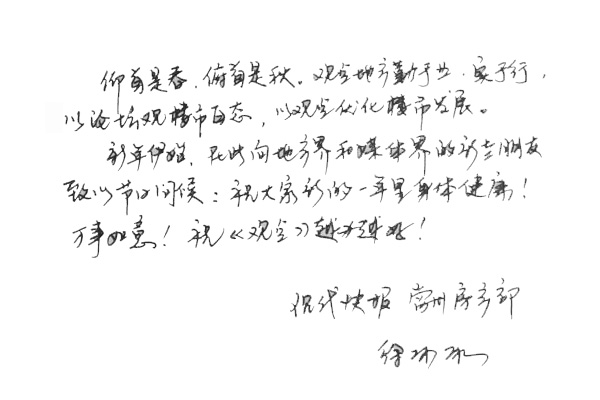 仰首是春，俯首是秋。观点地产勤于业，实于行，
以论坛观楼市百态，以观点优化楼市发展。
新年伊始，在此向地产界和媒体界的新老朋友
致以节日问候：祝大家新的一年里身体健康！
万事如意！祝《观点》越办越好！
现代快报 常州房产部
徐